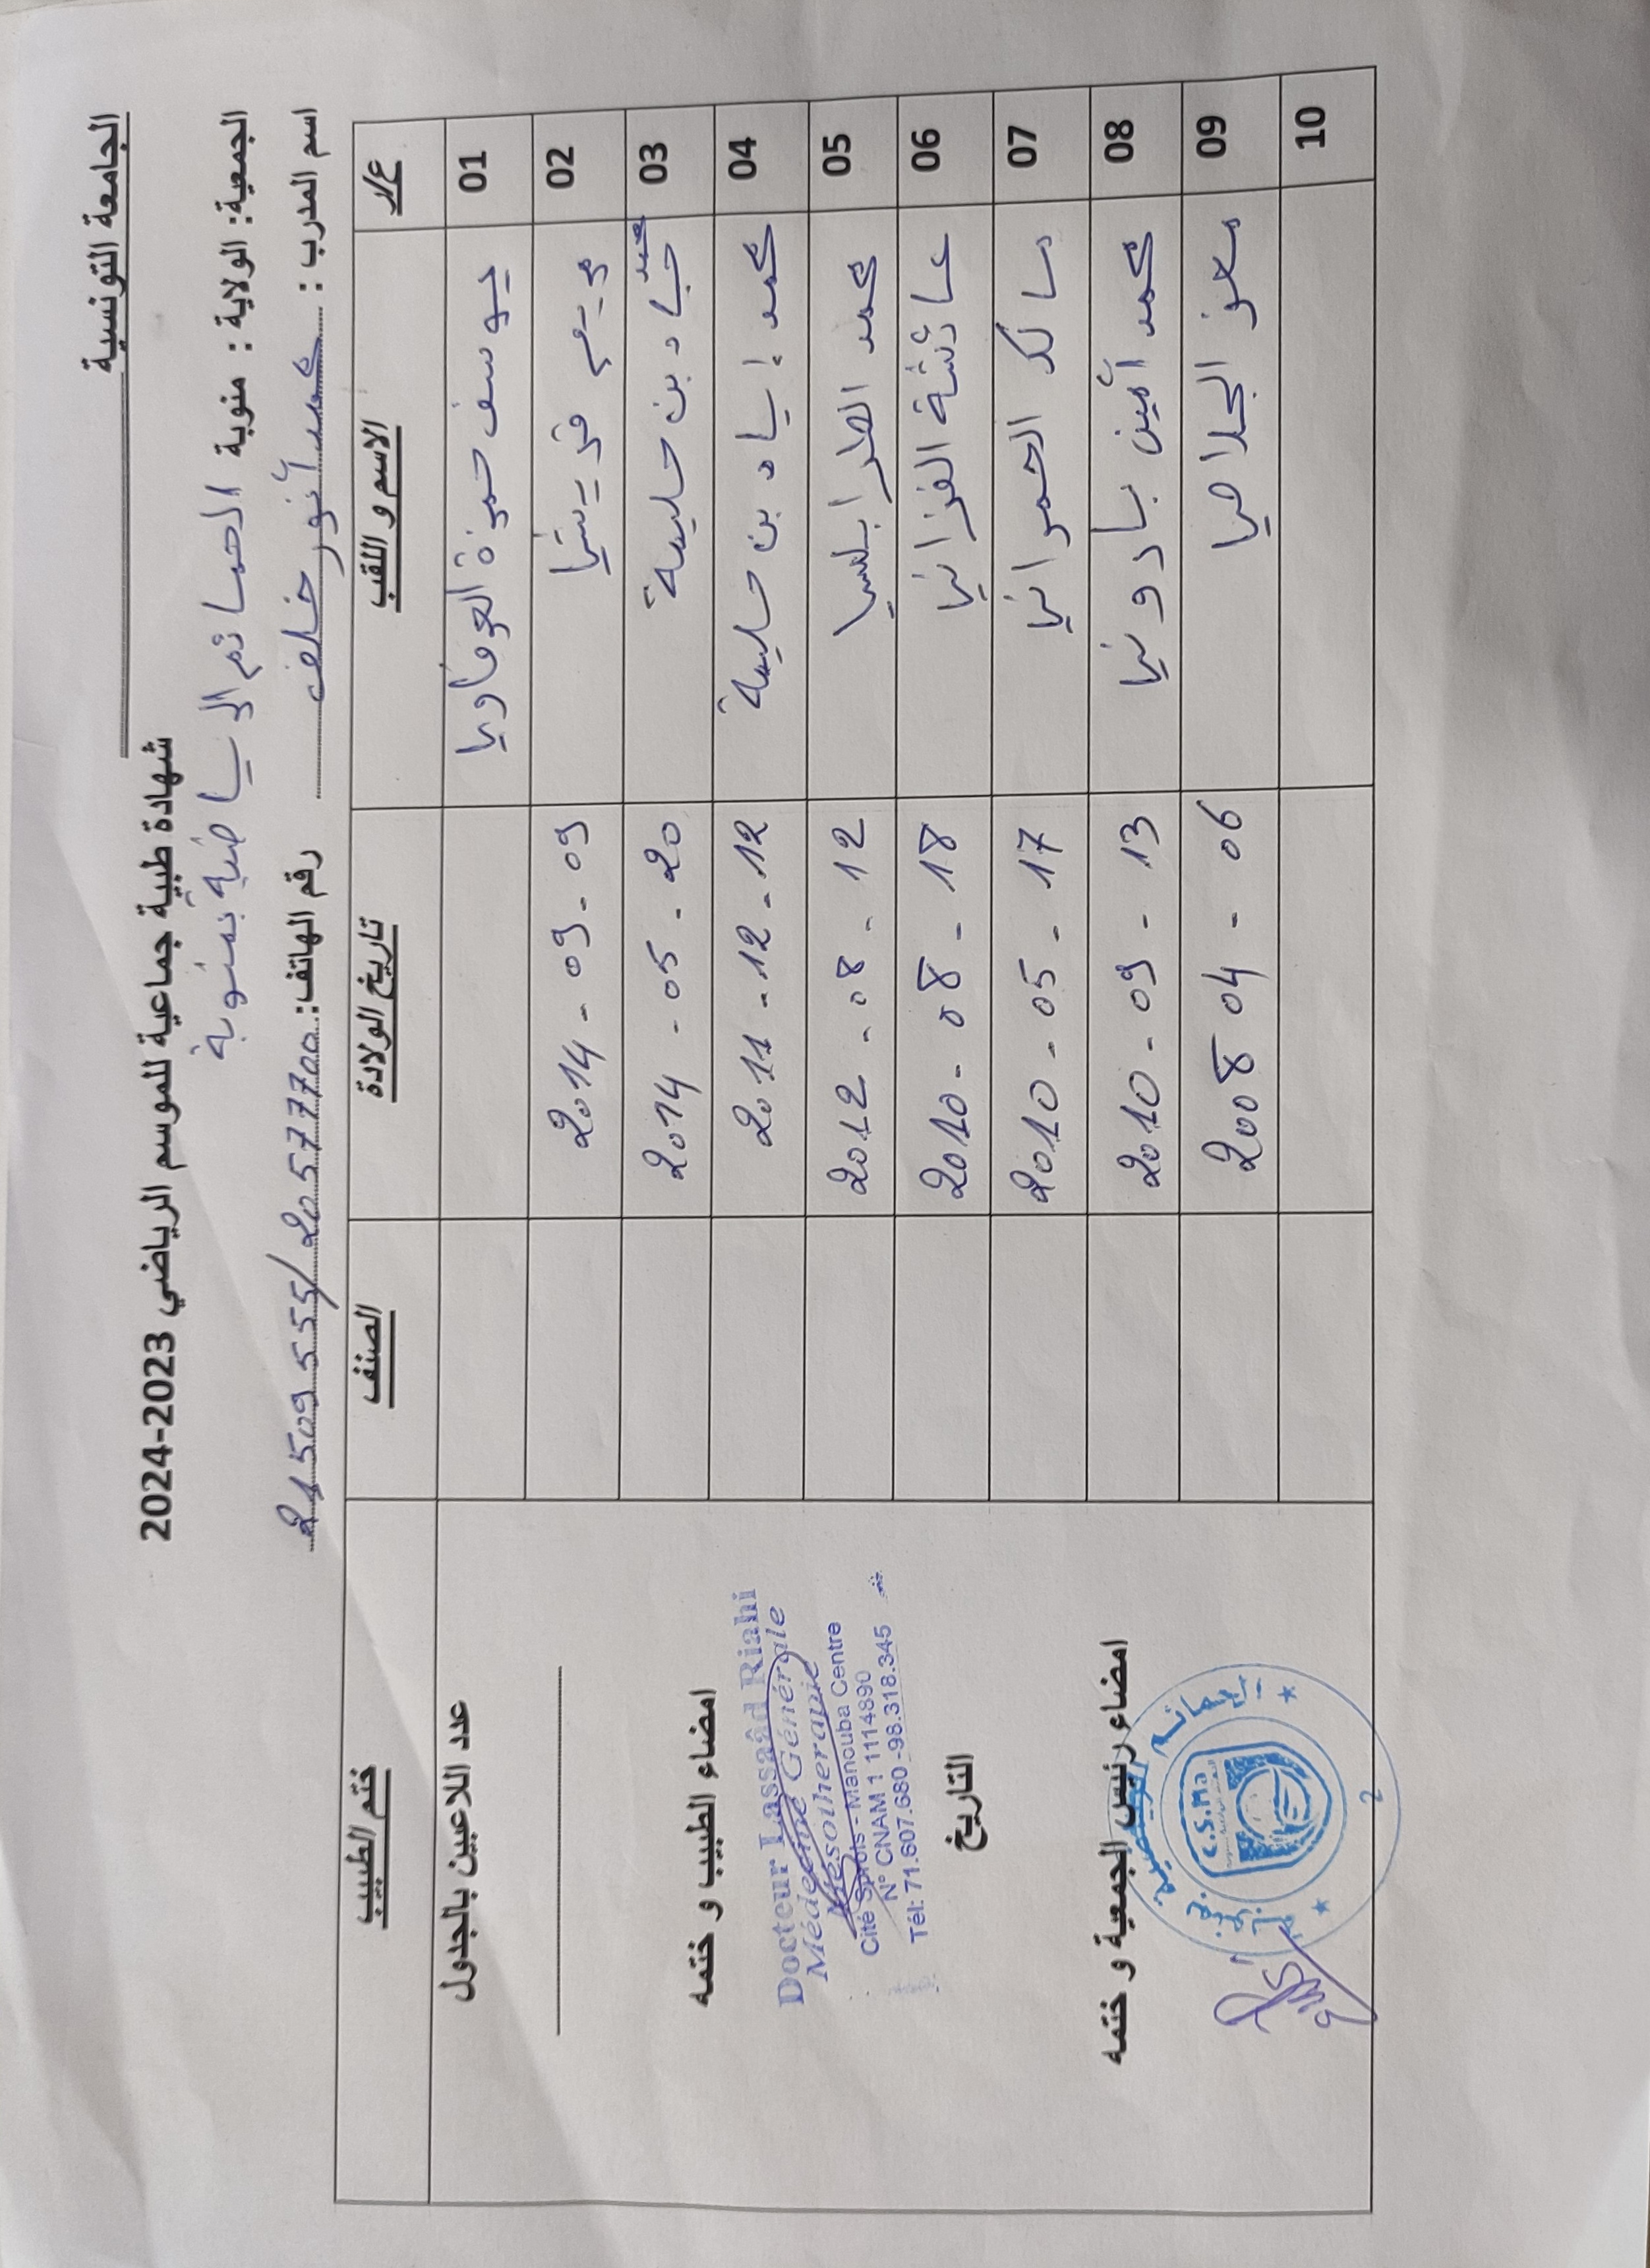 الجامعة التونسية
شهادة طبية جماعية للموسم الرياضي 2023-2024
الجمعية: الولاية : منوبة الحمائم الرياضية بمنوبة
اسم المدرب : محمد أنور خلف رقم الهاتف: 20577700 / 21509555
ع/ر الاسم و اللقب تاريخ الولادة الصنف ختم الطبيب
01 يوسف حمزة العرفاوي
02 مريم قريشي 2014 - 09 - 09
03 محمد جياد بن حليمة 2014 - 05 - 20
04 محمد إياد بن حليمة 2011 - 12 - 12
05 محمد الطرابلسي 2012 - 08 - 12
06 عائشة الفزاني 2010 - 08 - 18
07 مالك الحمراني 2010 - 05 - 17
08 محمد أمين بادوني 2010 - 09 - 13
09 معز الجلاصي 2008 04 - 06
10
عدد اللاعبين بالجدول
امضاء الطبيب و ختمه
Docteur Lassaâd Riahi
Médecine Générale
Mésotherapie
Cité Sprols - Manouba Centre
N° CNAM 1 1114890
Tél: 71.607.680 - 98.318.345
التاريخ
امضاء رئيس الجمعية و ختمه
C.S.Ma
2